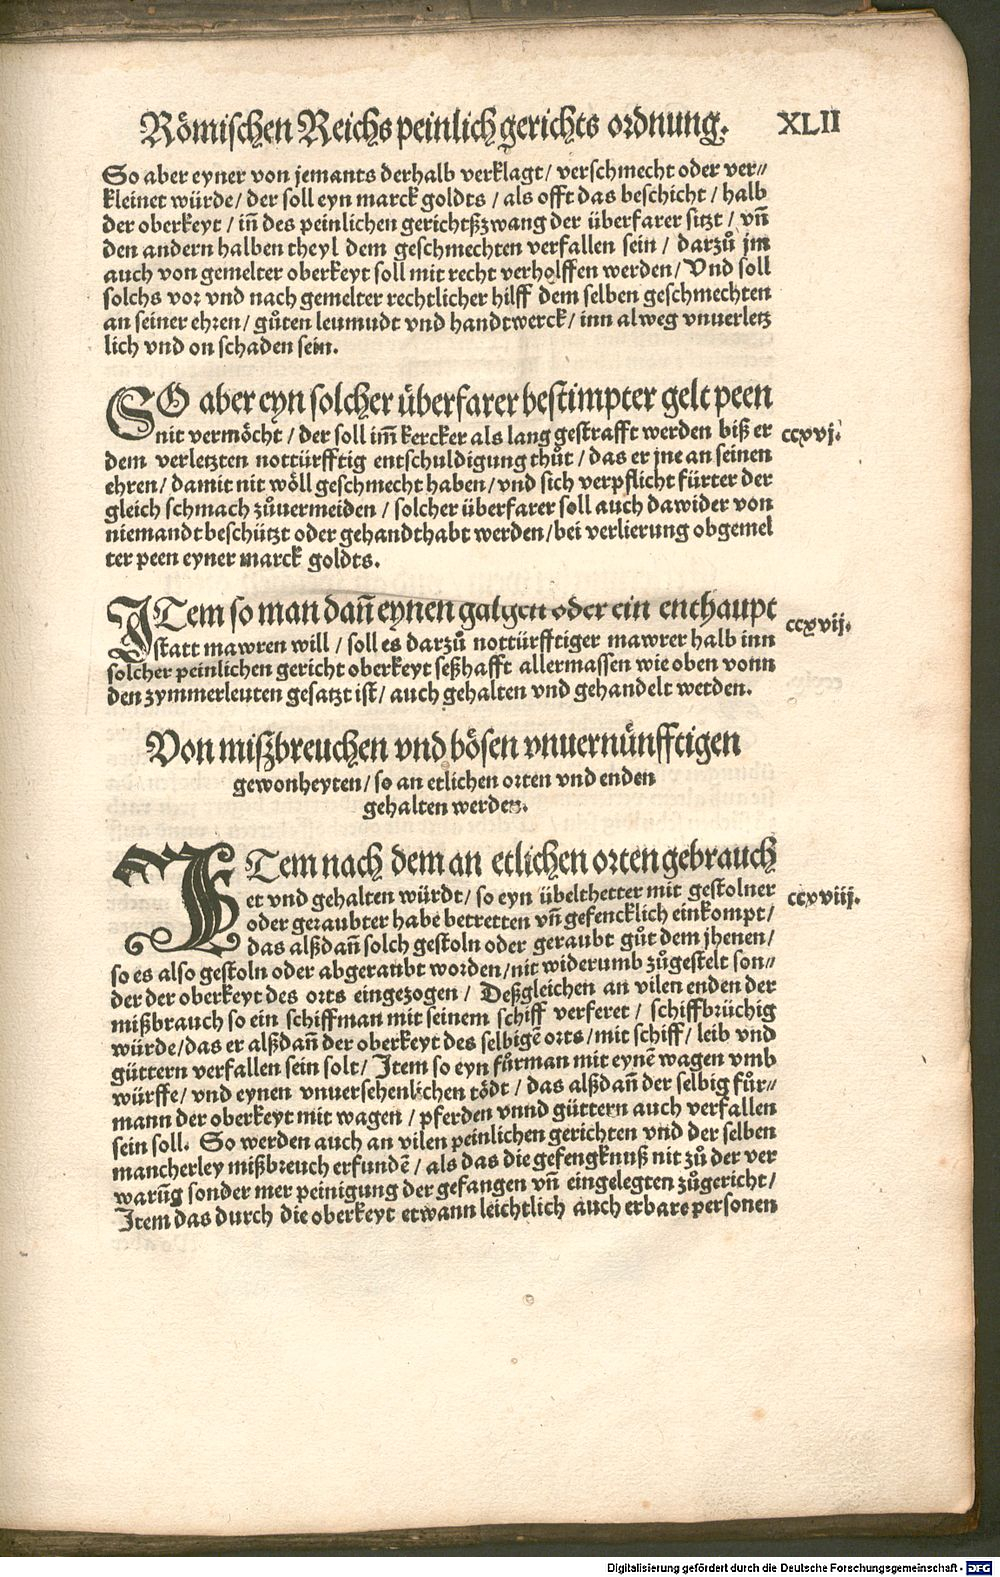 Römischen Reichs peinlich gerichts ordnung. XLII
So aber eyner von jemants derhalb verklagt/ verschmecht oder ver⸗
kleinet würde/ der soll eyn marck goldts / als offt das beschicht / halb
der oberkeyt / iñ des peinlichen gerichtßzwang der überfarer sitzt / vñ
den andern halben theyl dem geschmechten verfallen sein / darzů jm
auch von gemelter oberkeyt soll mit recht verholffen werden/ Vnd soll
solchs vor vnd nach gemelter rechtlicher hilff dem selben geschmechten
an seiner ehren/ gůten leumudt vnd handtwerck/ inn alweg vnuerletz
lich vnd on schaden sein.
SO aber eyn solcher überfarer bestimpter gelt peen
nit vermöcht / der soll im̃ kercker als lang gestrafft werden biß er ccxvj.
dem verletzten nottürfftig entschuldigung thůt / das er jne an seinen
ehren/ damit nit wöll geschmecht haben/ vnd sich verpflicht fürter der
gleich schmach zůuermeiden / solcher überfarer soll auch dawider von
niemandt beschützt oder gehandthabt werden/ bei verlierung obgemel
ter peen eyner marck goldts.
ITem so man dañ eynen galgen oder ein enthaupt
statt mawren will / soll es darzů nottürfftiger mawrer halb inn ccxvij.
solcher peinlichen gericht oberkeyt seßhafft allermassen wie oben vonn
den zymmerleuten gesatzt ist / auch gehalten vnd gehandelt werden.
Von mißbreuchen vnd bösen vnuernünfftigen
gewonheyten/ so an etlichen orten vnd enden
gehalten werden.
ITem nach dem an etlichen orten gebrauch
et vnd gehalten würdt/ so eyn übelthetter mit gestolner ccxviij.
oder geraubter habe betretten vñ gefencklich einkompt/
das alßdañ solch gestoln oder geraubt gůt dem jhenen/
so es also gestoln oder abgeraubt worden/ nit widerumb zůgestelt son⸗
der der oberkeyt des orts eingezogen / Deßgleichen an vilen enden der
mißbrauch so ein schiffman mit seinem schiff verferet / schiffbrüchig
würde/ das er alßdañ der oberkeyt des selbigẽ orts/ mit schiff/ leib vnd
güttern verfallen sein solt/ Item so eyn fůrman mit eynẽ wagen vmb
würffe/ vnd eynen vnuersehenlichen tödt / das alßdañ der selbig fůr⸗
mann der oberkeyt mit wagen / pferden vnnd güttern auch verfallen
sein soll. So werden auch an vilen peinlichen gerichten vnd der selben
mancherley mißbreuch erfundẽ / als das die gefengknuß nit zů der ver
warũg sonder mer peinigung der gefangen vñ eingelegten zůgericht/
Item das durch die oberkeyt etwann leichtlich auch erbare personen
Digitalisierung gefördert durch die Deutsche Forschungsgemeinschaft - DFG